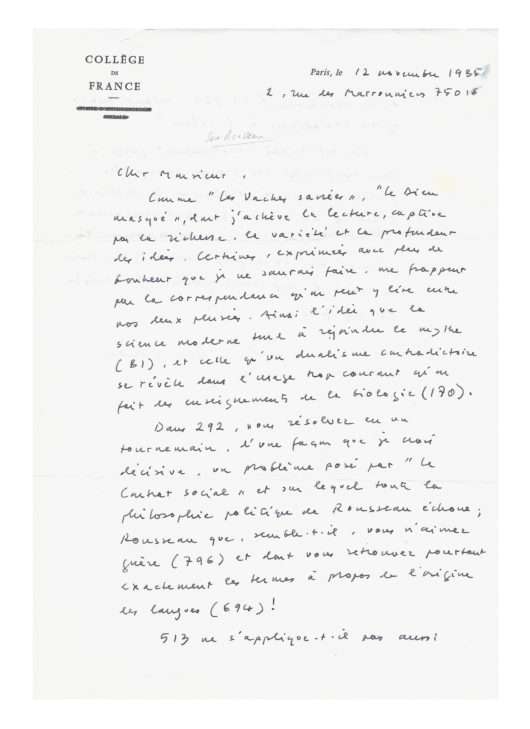 COLLÈGE
DE
FRANCE
Paris, le 12 novembre 1985
2, rue des Marronniers 75016
Cher Monsieur,
Comme "Les Vaches sacrées", "Le Dieu
masqué", dont j'achève la lecture, captive
par la richesse, la variété et la profondeur
des idées. Certaines, exprimées avec plus de
bonheur que je ne saurais faire, me frappent
par la correspondance qu'on peut y lire entre
nos deux pensées. Ainsi l'idée que la
science moderne tend à rejoindre le mythe
(81), et celle qu'un dualisme contradictoire
se révèle dans l'usage trop courant qu'on
fait des enseignements de la biologie (170).
Dans 292, vous résolvez en un
tournemain, d'une façon que je crois
décisive, un problème posé par "Le
Contrat social" et sur lequel toute la
philosophie politique de Rousseau échoue ;
Rousseau que, semble-t-il, vous n'aimez
guère (796) et dont vous retrouvez pourtant
exactement les termes à propos de l'origine
des langues (694) !
513 ne s'applique-t-il pas aussi